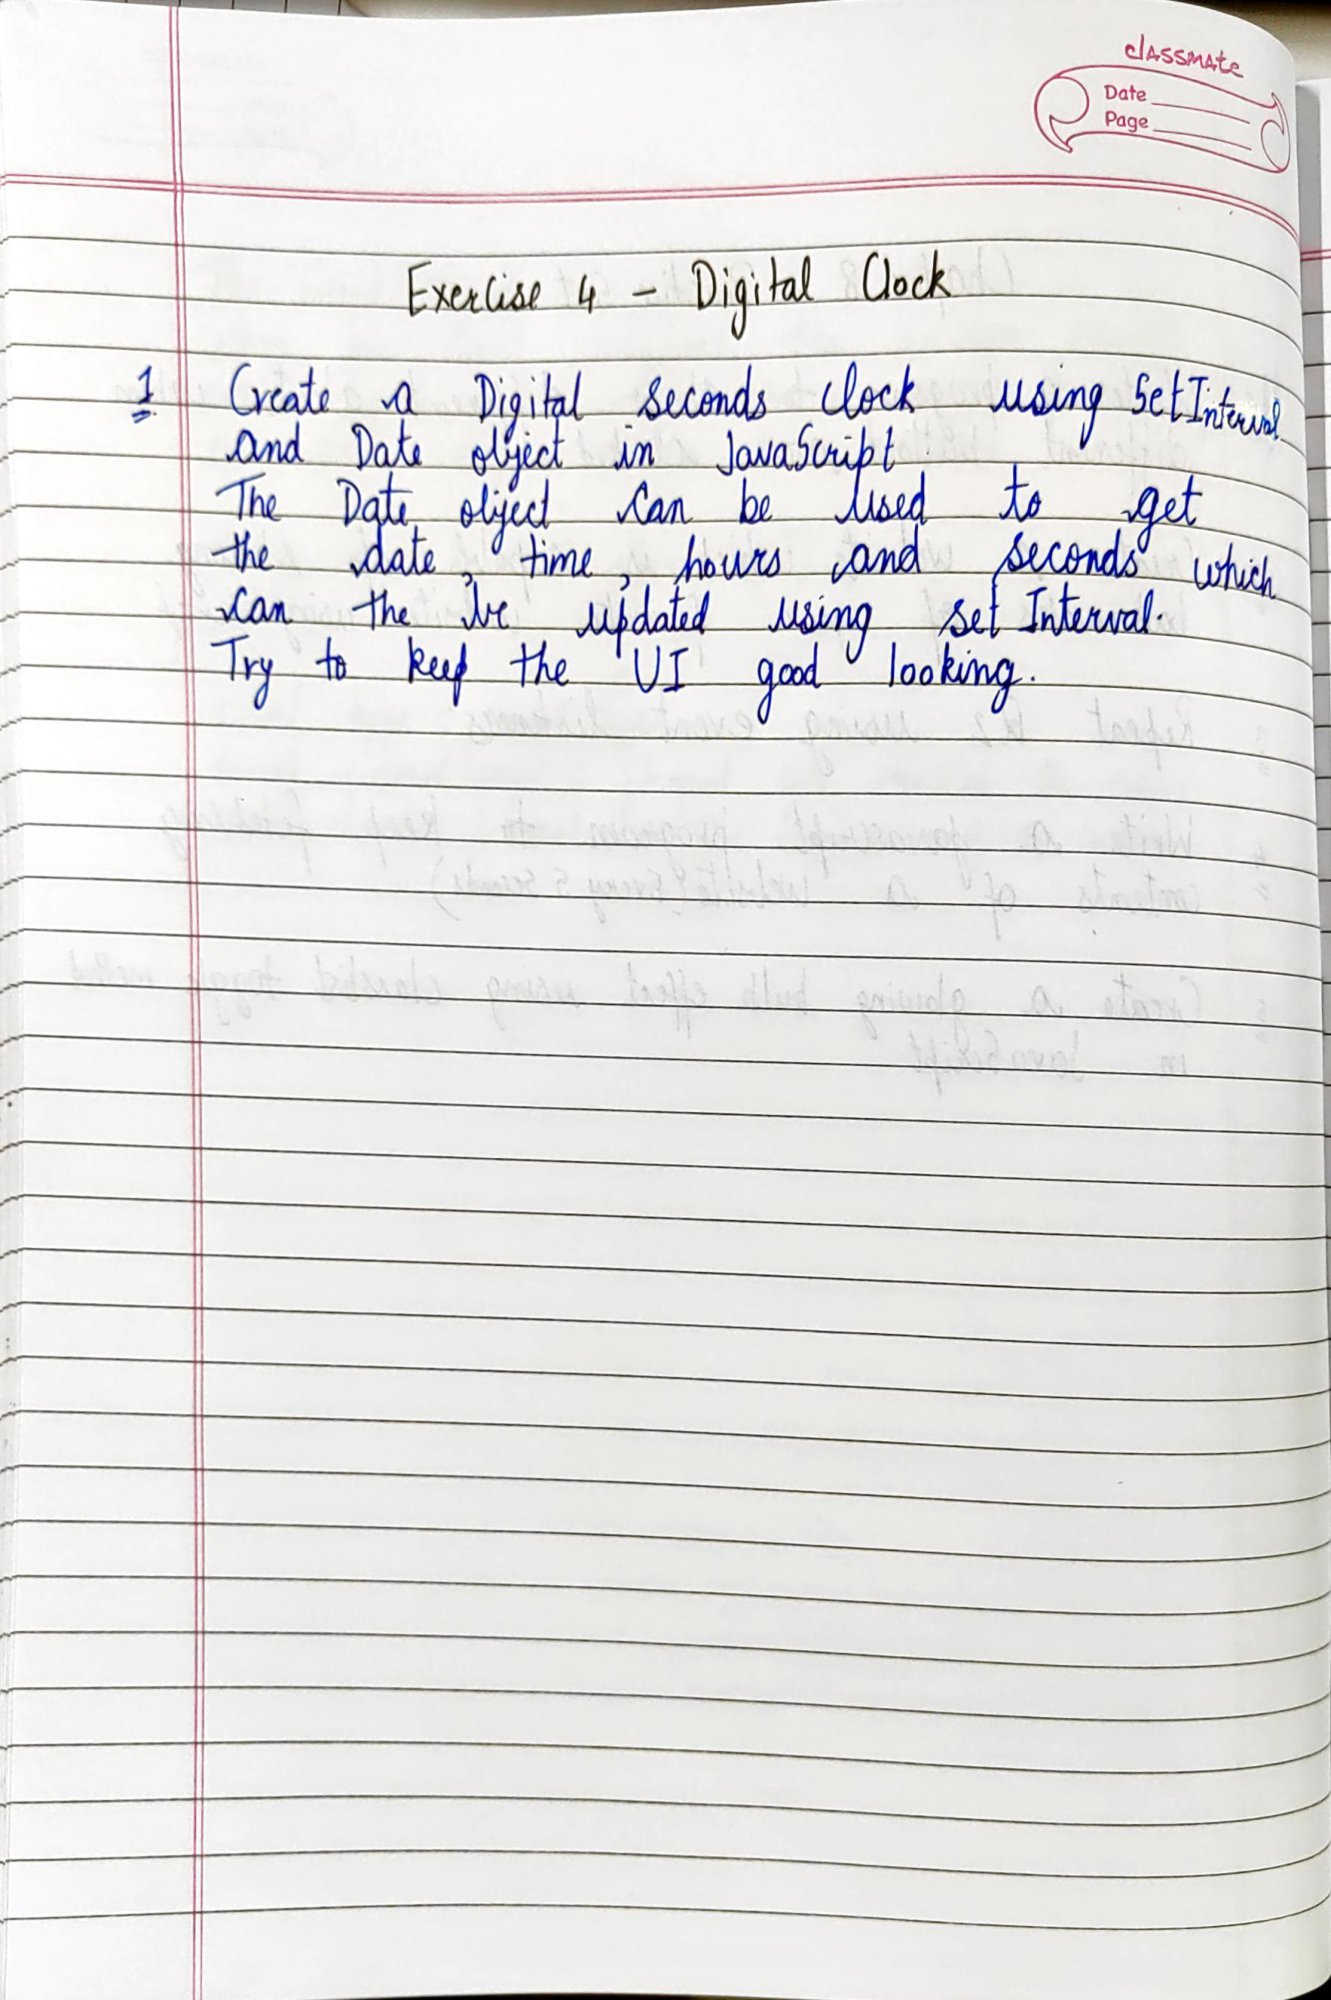 classmate
Date
Page
Exercise 4 - Digital Clock
1 Create a Digital seconds clock using SetInterval
and Date object in JavaScript.
The Date object can be used to get
the date, time, hours and seconds which
can the be updated using set Interval.
Try to keep the UI good looking.